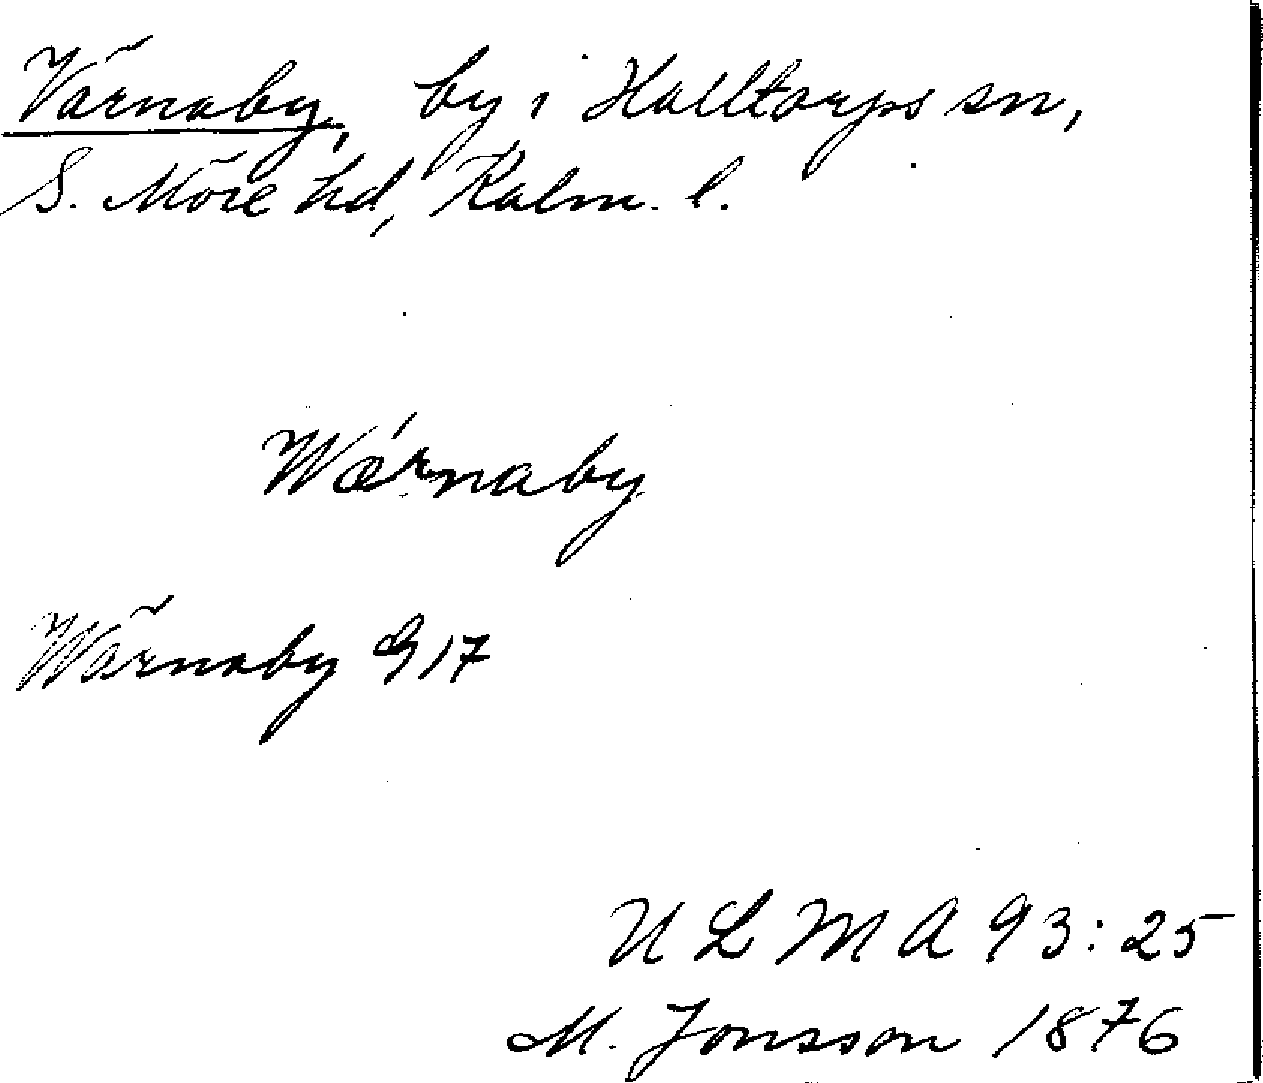 Värnaby, by i Halltorps sn,
S. Möre hd, Kalm. l.
Wǽrnaby
Wärnaby G 17
ULMA 93:25
M. Jonsson 1876